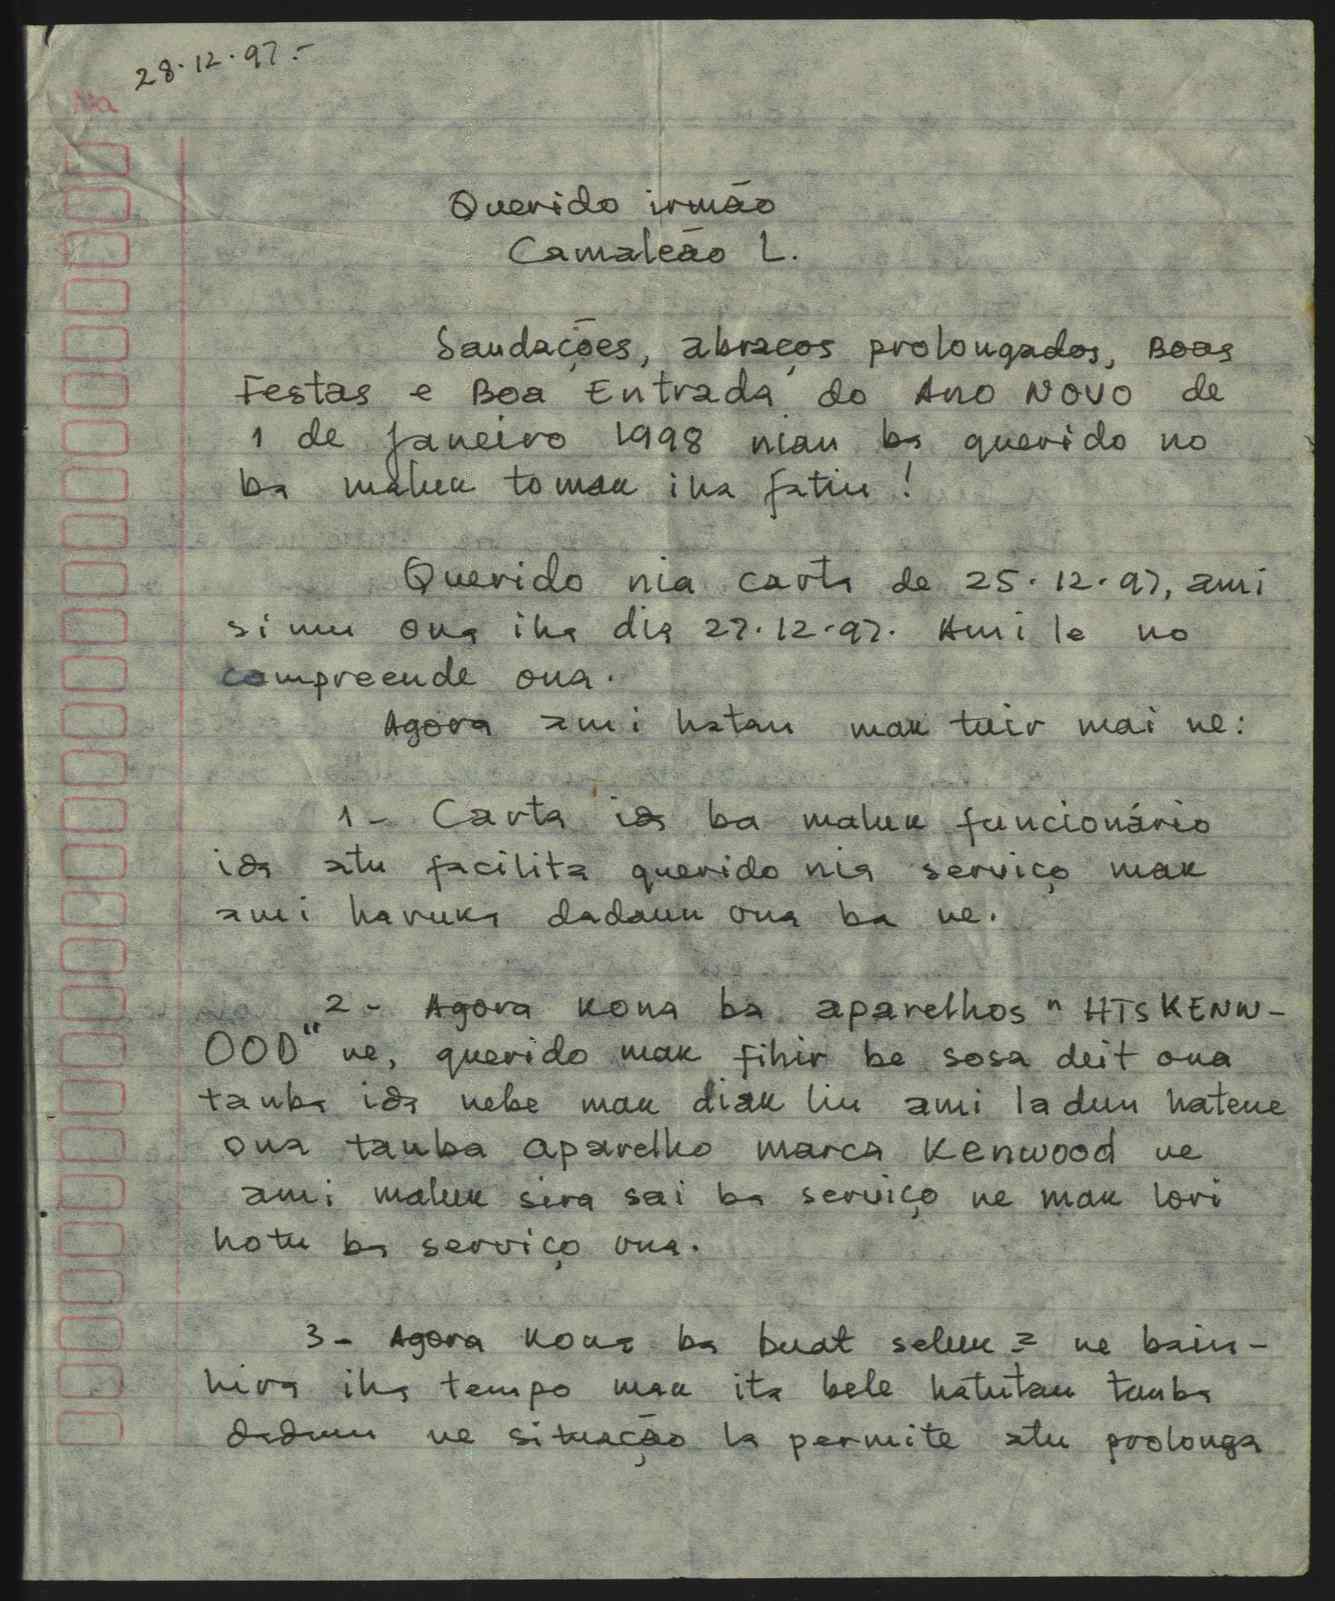 28.12.97.-
No
Querido irmão
Camaleão L.
Saudações, abraços prolongados, Boas
Festas e Boa Entrada do Ano Novo de
1 de Janeiro 1998 nian ba querido no
ba maluk tomak iha fatin !
Querido nia carta de 25.12.97, ami
simu ona iha dia 27.12.97. Ami le no
compreende ona.
Agora ami hatan mak tuir mai ne:
1- Carta ida ba maluk funcionário
ida atu facilita querido nia serviço mak
ami haruka dadaun ona ba ne.
2- Agora kona ba aparelhos "HTS KENW-
OOD" ne, querido mak fihir be sosa deit ona
tanba ida nebe mak diak liu ami ladun hatene
ona tanba aparelho marca Kenwood ne
ami maluk sira sai ba serviço ne mak lori
hotu ba serviço ona.
3- Agora kona ba buat seluk ne bain-
hira iha tempo mak ita bele hatutan tanba
dadaun ne situação la permite atu prolonga